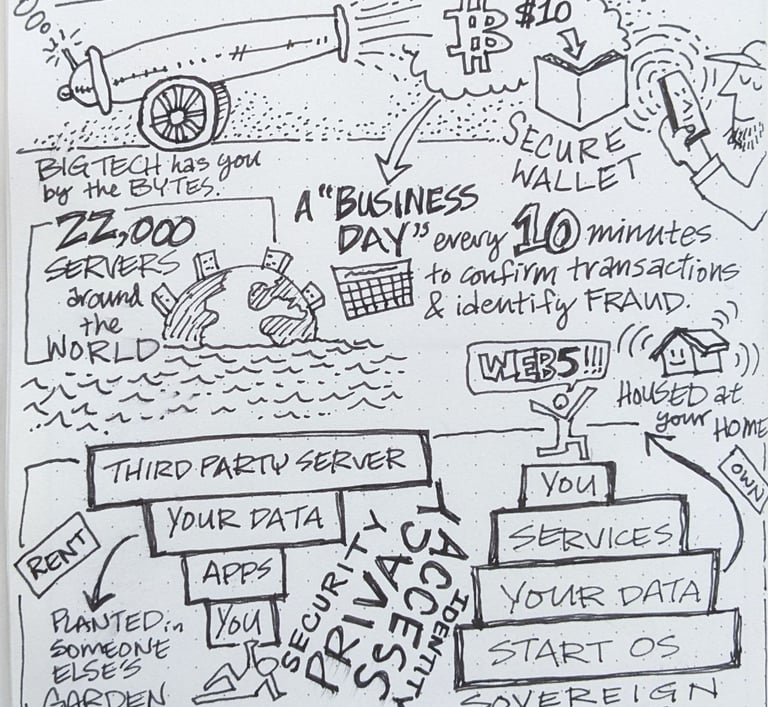 ₿
$10
SECURE
WALLET
BIG TECH has you
by the BYTES.
22,000
SERVERS
around
the
WORLD
A "BUSINESS
DAY" every 10 minutes
to confirm transactions
& identify FRAUD.
WEB5!!!
HOUSED at
your HOME
OWN
THIRD PARTY SERVER
YOUR DATA
APPS
YOU
RENT
PLANTED in
SOMEONE
ELSE'S
GARDEN
SECURITY
PRIVACY
ACCESS
IDENTITY
YOU
SERVICES
YOUR DATA
START OS
SOVEREIGN